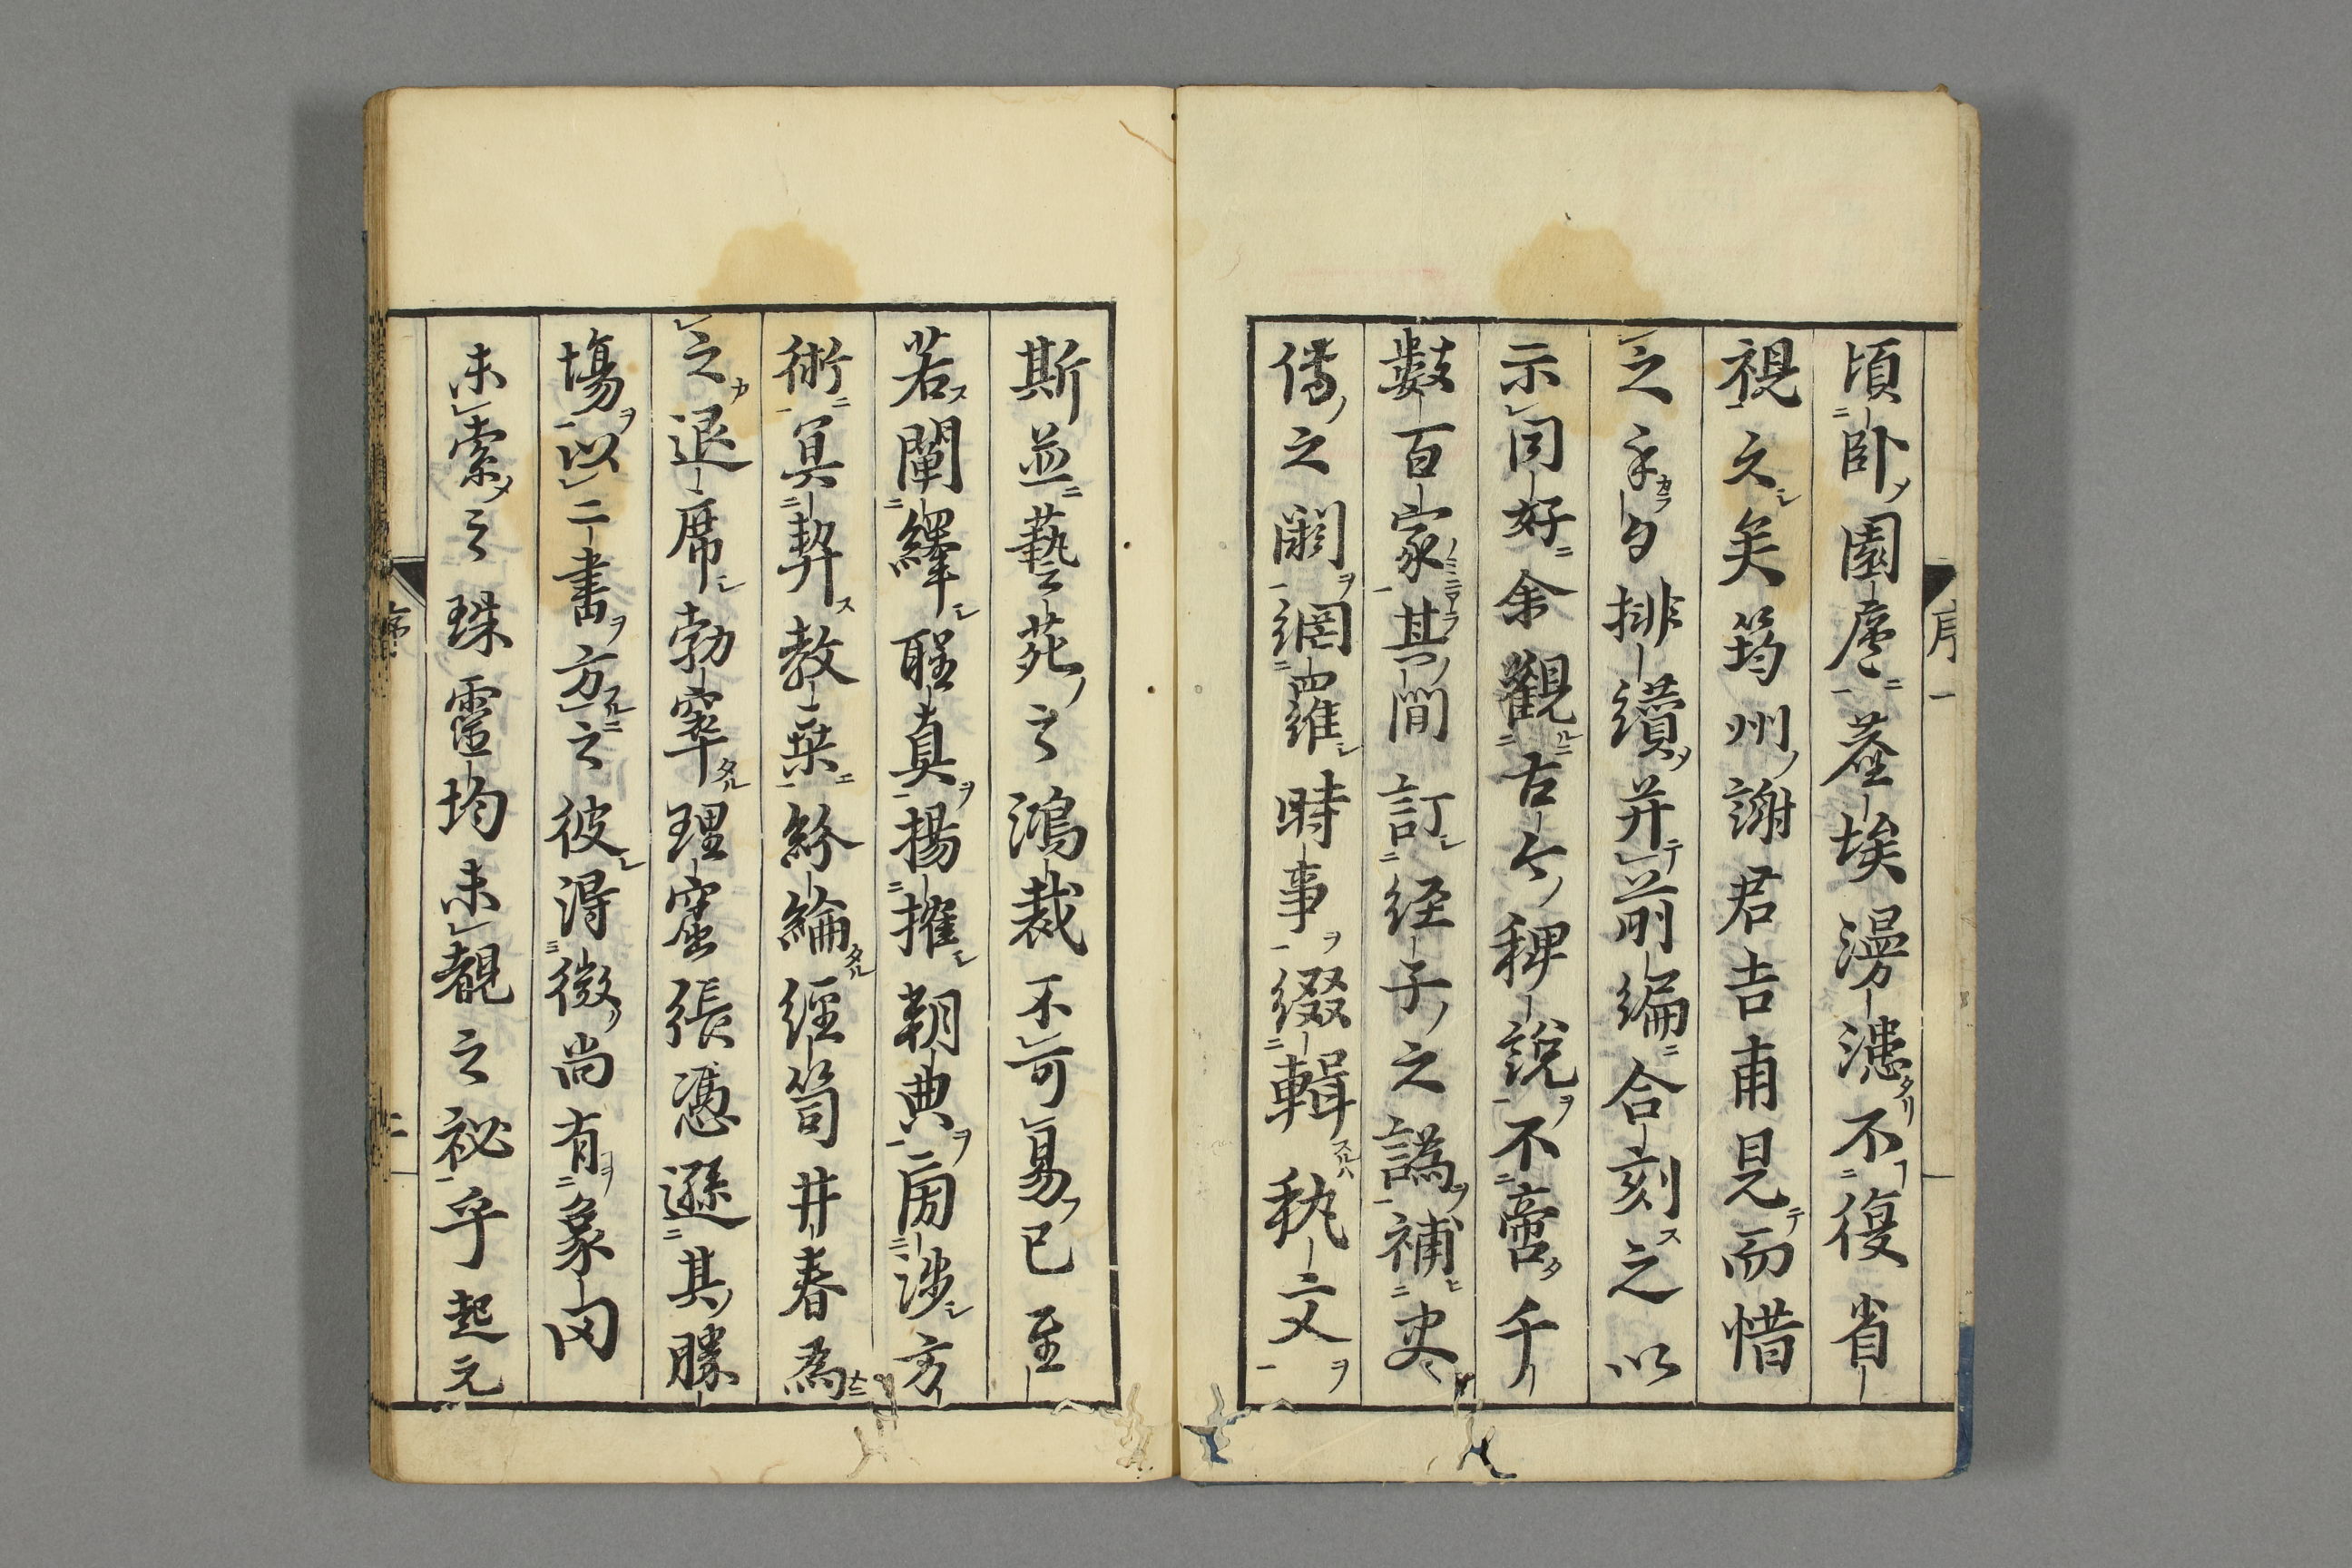 頃卧園廬塵埃漫漶不復省
視久矣筠州謝君吉甫見而惜
之手自排纘并前編合刻之以
示同好余觀古今稗說不啻千
數百家其間訂経子之譌補史
傳之闕網羅時事綴輯執文
斯並藝苑之鴻裁不可易已至
若闡繹聖真揚搉朝典厠渉方
術冥契教乗紛綸經笥井春為
之退席勃窣理窟張憑遜其勝
塲以二書方之彼得微尚有象罔
未索之珠靈均未覩之祕乎起元
序 一
序 二